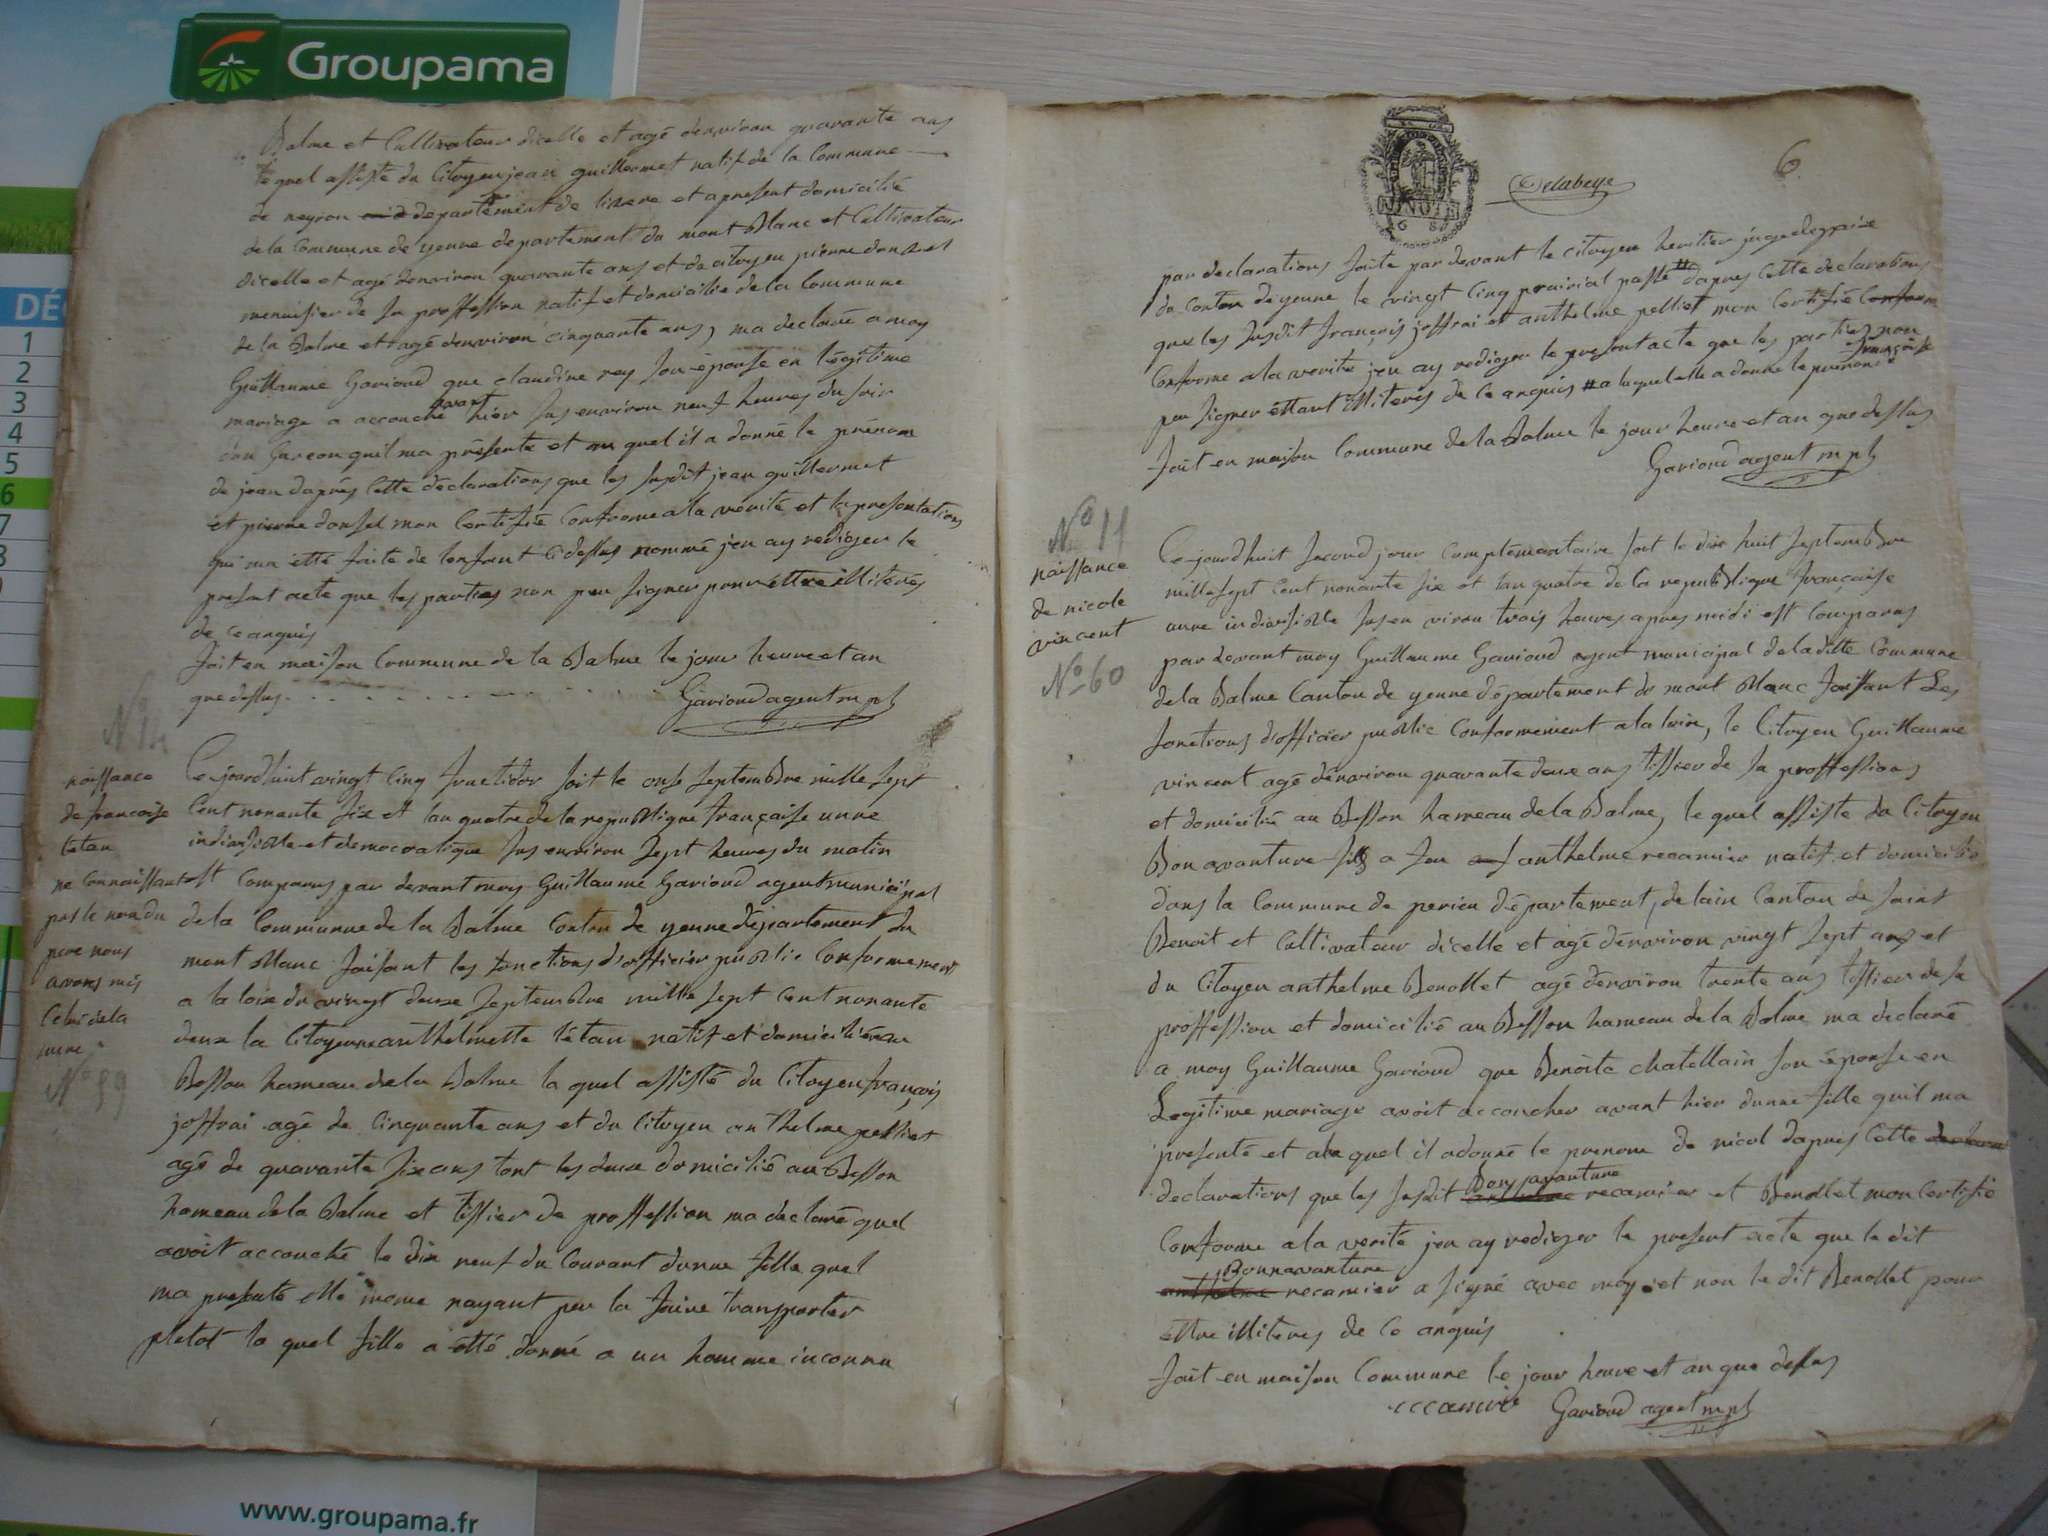 Groupama
DÉC
1
2
3
4
5
6
7
8
9
Balme et Cultivateur dicelle et agé denviron quarante ans
le quel assisté du Citoyen jean guillermet natif de la Commune
de neyron departement de lisere et apresent domicilié
de la Commune de yenne departement du mont Blanc et Cultivateur
dicelle et agé denviron quarante ans et du citoyen pierre donsel
menuisier de sa proffession natif et domicilié de la Commune
de la Balme et agé denviron cinquante ans, ma declaré a moy
Guillaume Gavioud que claudine rey son épouse en légitime
mariage a accouché avant hier sus environ neuf heures du soir
dun Garcon quil ma présenté et au quel il a donné le prénom
de jean daprés cette déclarations que les susdit jean guillermet
et pierre donsel mon Certifié Conforme a la vérité et la presentations
qui ma etté faite de lenfant Cidessus nommé jen ay rediger le
present acte que les parties non peu signer pour ettre illiterés
de ce anquis
fait en maison Commune de la Balme le jour heure et an
que dessus . . . . . . . . Gavioud agent mpl
naissance
de francoise
tétau
ne connaissant
pas le nom du
pere nous
avons mis
Celui de la
mere
No 59
Ce jourdhuit vingt Cinq fructidor soit le onse Septembre mille Sept
Cent nonante six et lan quatre de la republique française unne
indivisible et democratique sus environ Sept heures du matin
est Comparus par devant moy Guillaume Gavioud agent municipal
de la Communne de la Balme Canton de yenne département du
mont Blanc faisant les fonctions d'officier public Conformement
a la loix du vingt deux Septembre mille Sept Cent nonante
deux la Citoyenne anthelmette tétau natif et domiciliée au
Besson hameau de la Balme la quel assisté du Citoyen françois
joffrai agé de Cinquante ans et du Citoyen anthelme pelliet
agé de quarante six ans tout les deux domicilié au Besson
hameau de la Balme et tissier de proffession ma declaré quel
avoit accouché le dix neuf du Courant dunne fille quel
ma presenté elle meme nayant peu la faire transporter
pletot la quel fille a étté donné a un homme inconnu
Delabeye
6
par declarations faite par devant le citoyen heritier juge de paix
du Canton de yenne le vingt Cinq prairial passé # dapres Cette declarations
que les susdit françois joffrai et anthelme pelliet mon Certifié Conform
Conforme a la verité jen ay rediger le present acte que les parties non
peu signer éttant illiterés de Ce anquis # a la quel elle a donné le prenom de françoise
fait en maison Commune de la Balme le jour heure et an que dessus
Gavioud agent mpl
No 11
naissance
de nicole
vincent
No 60
Ce jourdhuit second jour Complémentaire soit le dix huit Septembre
mille sept Cent nonante six et lan quatre de la republique française
unne indivisible sus en viron trois heures apres midi est Comparus
par devant moy Guillaume Gavioud agent municipal de la ditte Commune
de la Balme Canton de yenne département du mont Blanc faissant Les
fonctions d'officier public Conformement a la loix, le Citoyen Guillaume
vincent agé dénviron quarante deux ans tissier de sa proffessions
et domicilié au Besson hameau de la Balme, le quel assiste du Citoyen
Bonavanture fils a feu anthelme recamier natif et domicilié
dans la Commune de perieu département, de lain Canton de saint
Benoit et Cultivateur dicelle et agé dénviron vingt sept ans et
du Citoyen anthelme Benollet agé dénviron trente ans tissier de sa
proffession et domicilié au Besson hameau de la Balme ma declaré
a moy Guillaume Gavioud que Benoite chatellain son épouse en
Legitime mariage avoit accoucher avant hier dunne fille quil ma
presenté et a la quel il a donné le prenom de nicol dapres Cette declara
declarations que les susdit anthelme Bonnavanture recamier et Benollet mon Certifié
Conforme a la verité jen ay rediger le present acte que le dit
anthelme Bonnavanture recamier a signé avec moy et non le dit Benollet pour
ettre illiteres de Ce anquis
fait en maison Commune le jour heure et an que dessus
recamier Gavioud agent mpl
www.groupama.fr